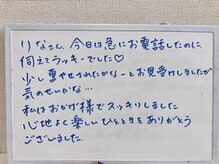 りなさん、今日は急にお電話したのに、
伺えてラッキーでした♡
少し痩せされたかなーとお見受けしましたが
気のせいかな…
私はおかげ様でスッキリしました
心地よく楽しいひとときをありがとう
ございました。